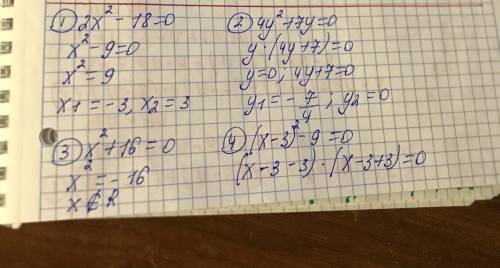 ① 2x² - 18 = 0
x² - 9 = 0
x² = 9
x1 = -3, x2 = 3
② 4y² + 7y = 0
y · (4y + 7) = 0
y = 0, 4y + 7 = 0
y1 = -7/4; y2 = 0
③ x² + 16 = 0
x² = -16
x ∉ R
④ (x - 3)² - 9 = 0
(x - 3 - 3) · (x - 3 + 3) = 0